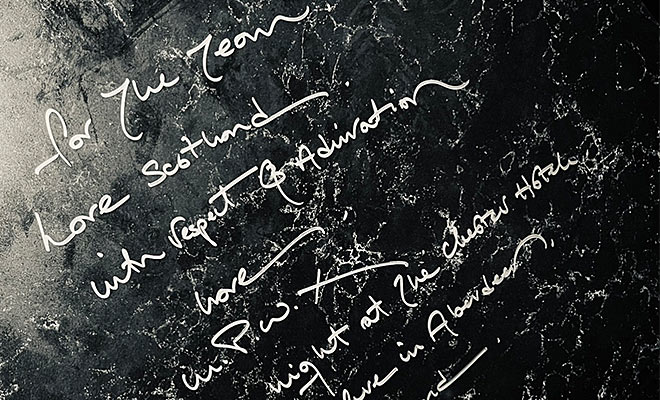 for The Team
Love Scotland
with respect & Admiration
Love
night at The Chester Hotel
live in Aberdeen,